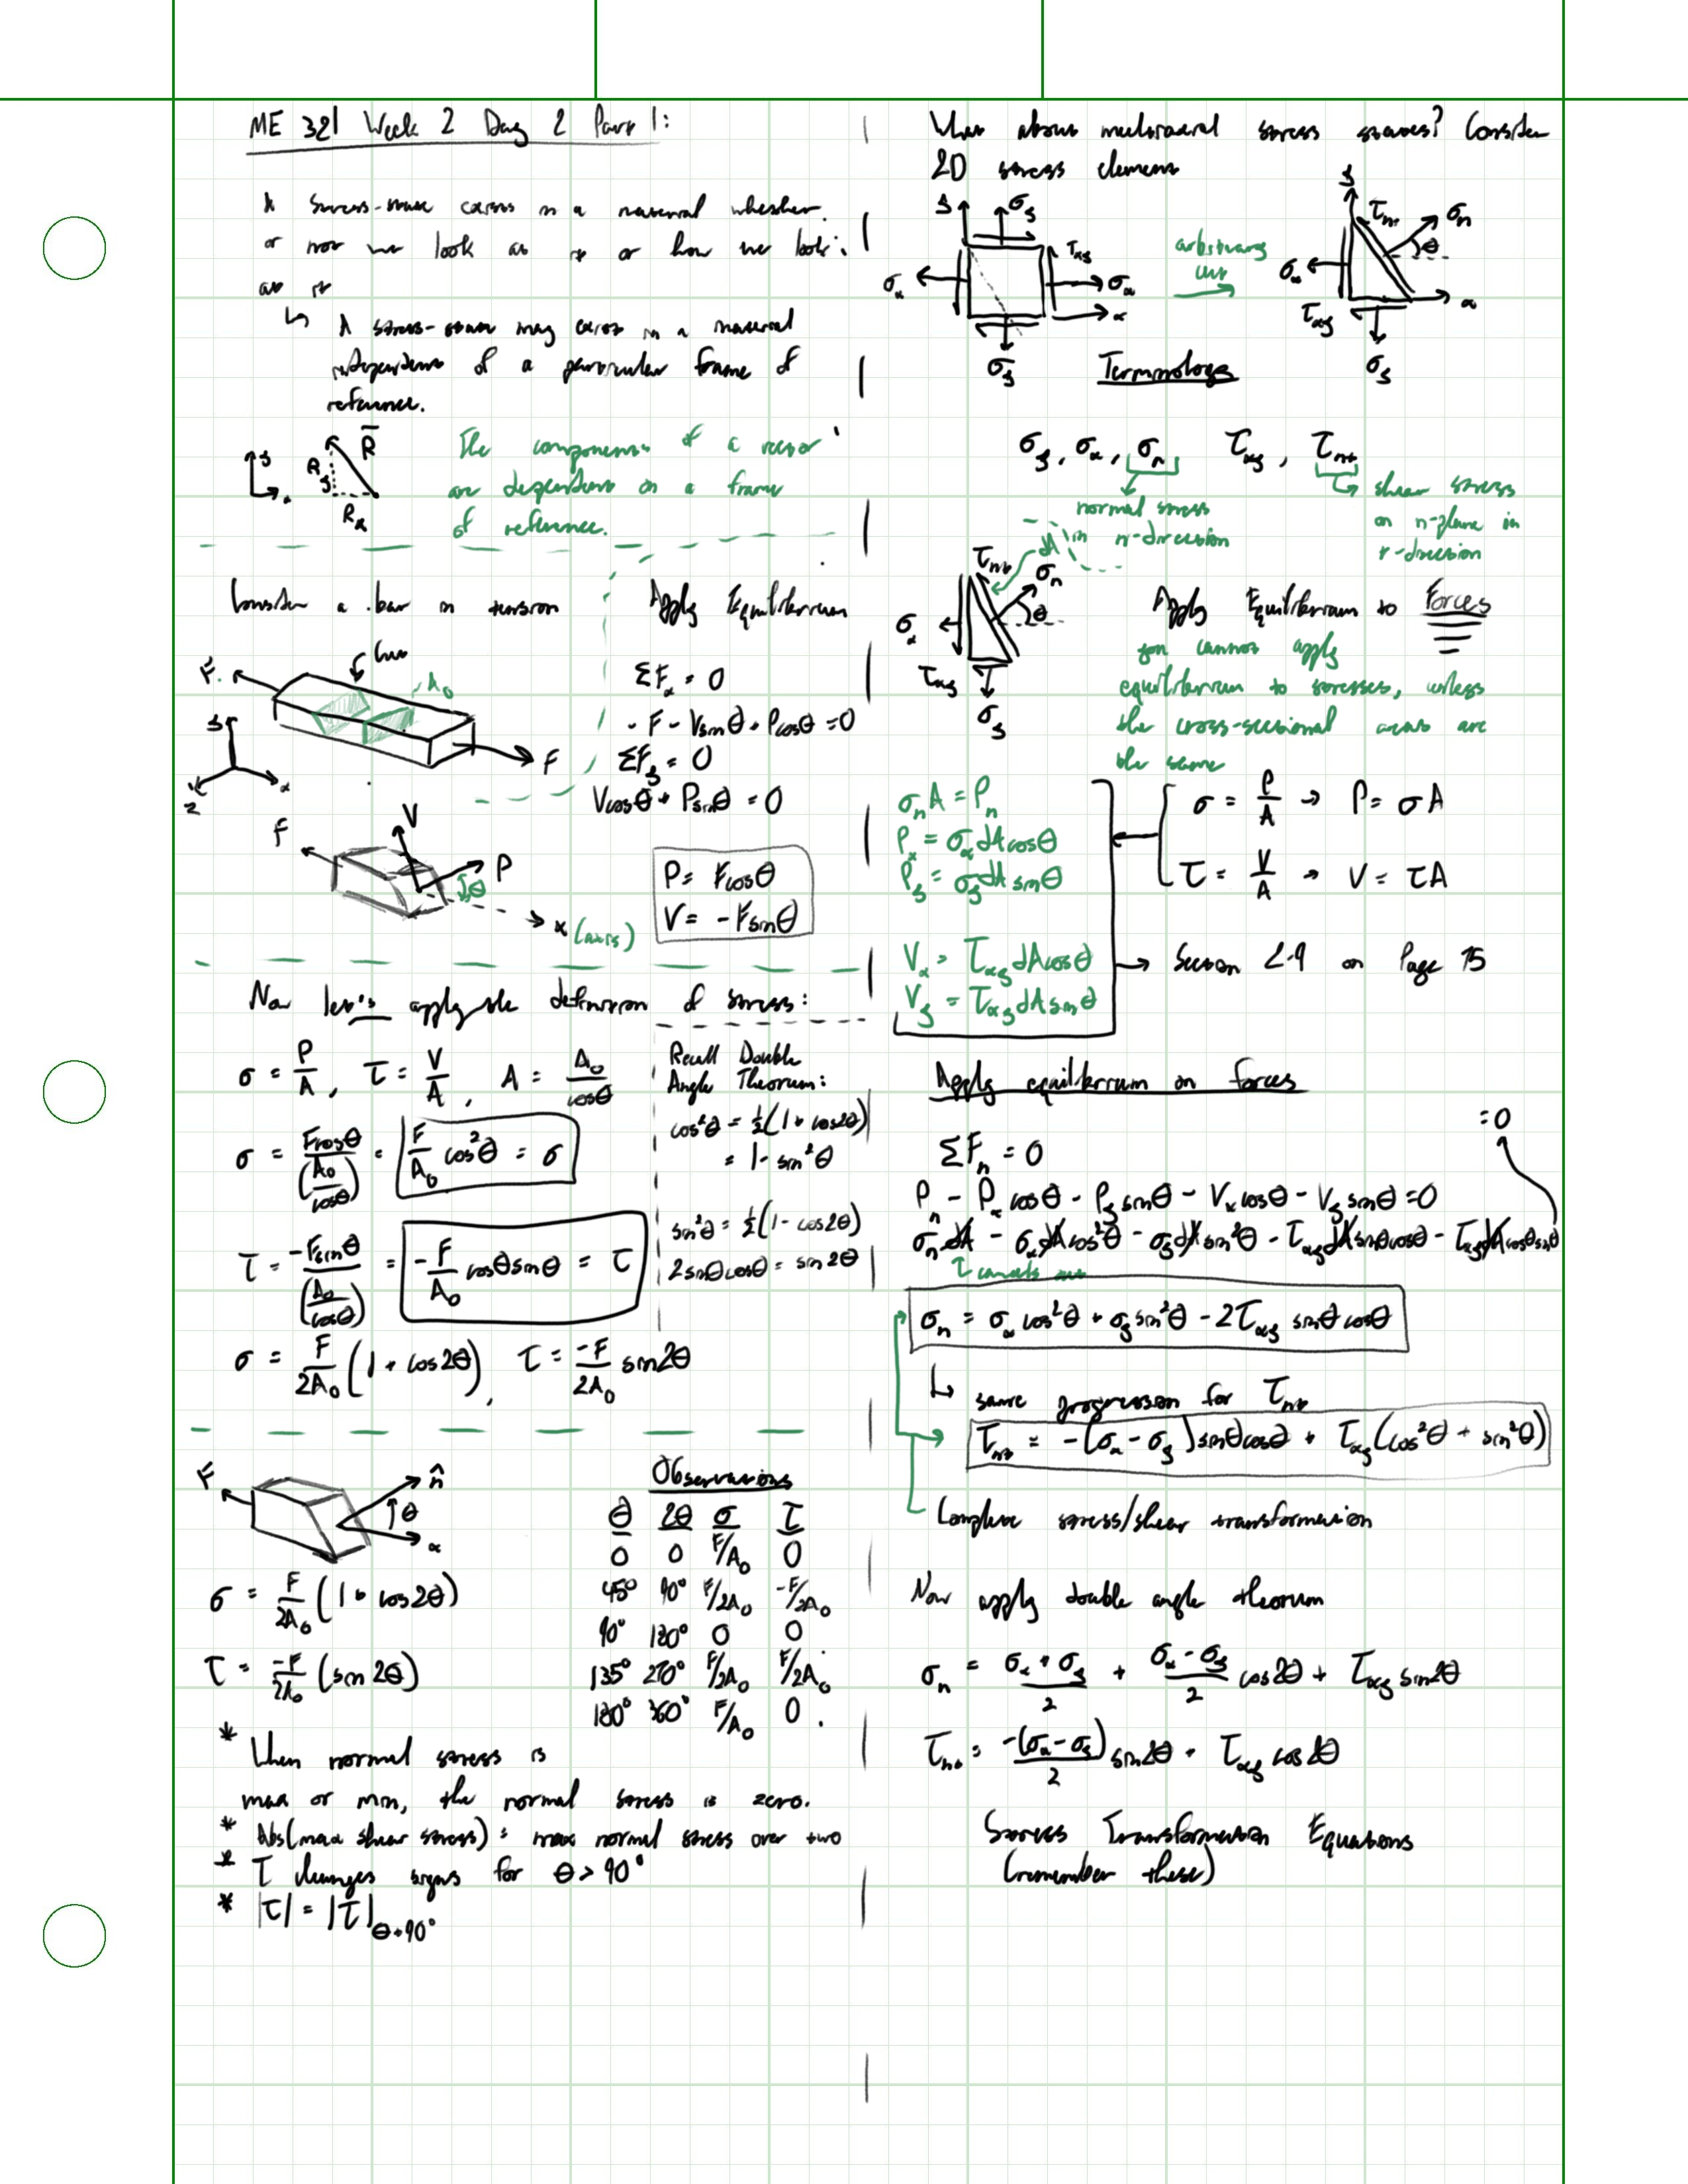 ME 321 Week 2 Day 2 Part 1:
A stress-state exists in a material whether
or not we look at it or how we look
at it
↳ A stress-state may exist in a material
independent of a particular frame of
reference.
y
x
R̄
R_y
R_x
The components of a vector
are dependent on a frame
of reference.
Consider a bar in tension
Cut
F
A₀
y
z
x
F
F
V
P
θ
x (axis)
Apply Equilibrium
ΣF_x = 0
-F - Vsinθ + Pcosθ = 0
ΣF_y = 0
Vcosθ + Psinθ = 0
P = Fcosθ
V = -Fsinθ
Now let's apply the definition of stress:
σ = P/A, τ = V/A, A = A₀/cosθ
σ = Fcosθ/(A₀/cosθ) = F/A₀ cos²θ = σ
τ = -Fsinθ/(A₀/cosθ) = -F/A₀ cosθsinθ = τ
σ = F/2A₀ (1 + cos2θ), τ = -F/2A₀ sin2θ
Recall Double
Angle Theorum:
cos²θ = ½(1 + cos2θ)
= 1 - sin²θ
sin²θ = ½(1 - cos2θ)
2sinθcosθ = sin2θ
F
n̂
θ
x
σ = F/2A₀ (1 + cos2θ)
τ = -F/2A₀ (sin2θ)
Observations
θ 2θ σ τ
0 0 F/A₀ 0
45° 90° F/2A₀ -F/2A₀
90° 180° 0 0
135° 270° F/2A₀ F/2A₀
180° 360° F/A₀ 0
* When normal stress is
max or min, the normal stress is zero.
* Abs(max shear stress) = max normal stress over two
* τ changes signs for θ > 90°
* |τ| = |τ|_θ+90°
What about multiaxial stress states? Consider
2D stress element
y
σ_y
τ_xy
σ_x
σ_x
x
σ_y
arbitrary
cut
y
τ_nt
σ_n
θ
σ_x
x
τ_xy
σ_y
Terminology
σ_y, σ_x, σ_n τ_xy, τ_nt
normal stress
in n-direction
shear stress
on n-plane in
t-direction
dA
τ_nt
σ_n
θ
σ_x
τ_xy
σ_y
Apply Equilibrium to Forces
you cannot apply
equilibrium to stresses, unless
the cross-sectional areas are
the same
σ_n A = P_n
P_x = σ_x dAcosθ
P_y = σ_y dAsinθ
V_x = τ_xy dAcosθ
V_y = τ_xy dAsinθ
σ = P/A → P = σA
τ = V/A → V = τA
→ Section 2-9 on Page 75
Apply equilibrium on forces
=0
ΣF_n = 0
P_n - P_x cosθ - P_y sinθ - V_x cosθ - V_y sinθ = 0
σ_n dA - σ_x dAcos²θ - σ_y dAsin²θ - τ_xy dAsinθcosθ - τ_xy dAcosθsinθ
cancels out
σ_n = σ_x cos²θ + σ_y sin²θ - 2τ_xy sinθcosθ
↳ same progression for τ_nt
τ_nt = -(σ_x - σ_y)sinθcosθ + τ_xy(cos²θ + sin²θ)
Complete stress/shear transformation
Now apply double angle theorum
σ_n = (σ_x + σ_y)/2 + (σ_x - σ_y)/2 cos2θ + τ_xy sin2θ
τ_nt = -(σ_x - σ_y)/2 sin2θ + τ_xy cos2θ
Stress Transformation Equations
(remember these)